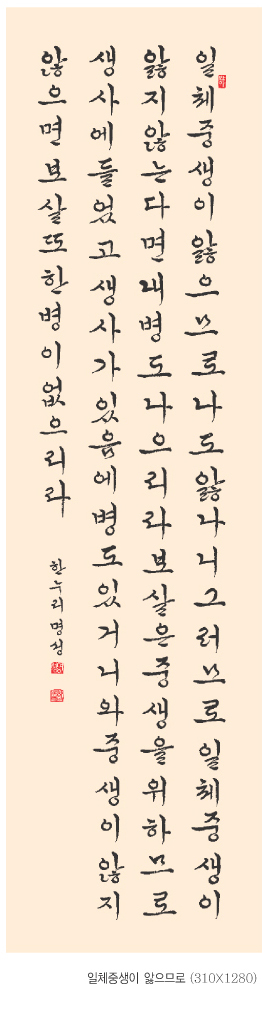 일체중생이앓으므로나도앓나니그러므로일체중생이
앓지않는다면내병도나으리라보살은중생을위하므로
생사에들었고생사가있음에병도있거니와중생이앓지
않으면보살또한병이없으리라
한누리명성
일체중생이 앓으므로 (310X1280)